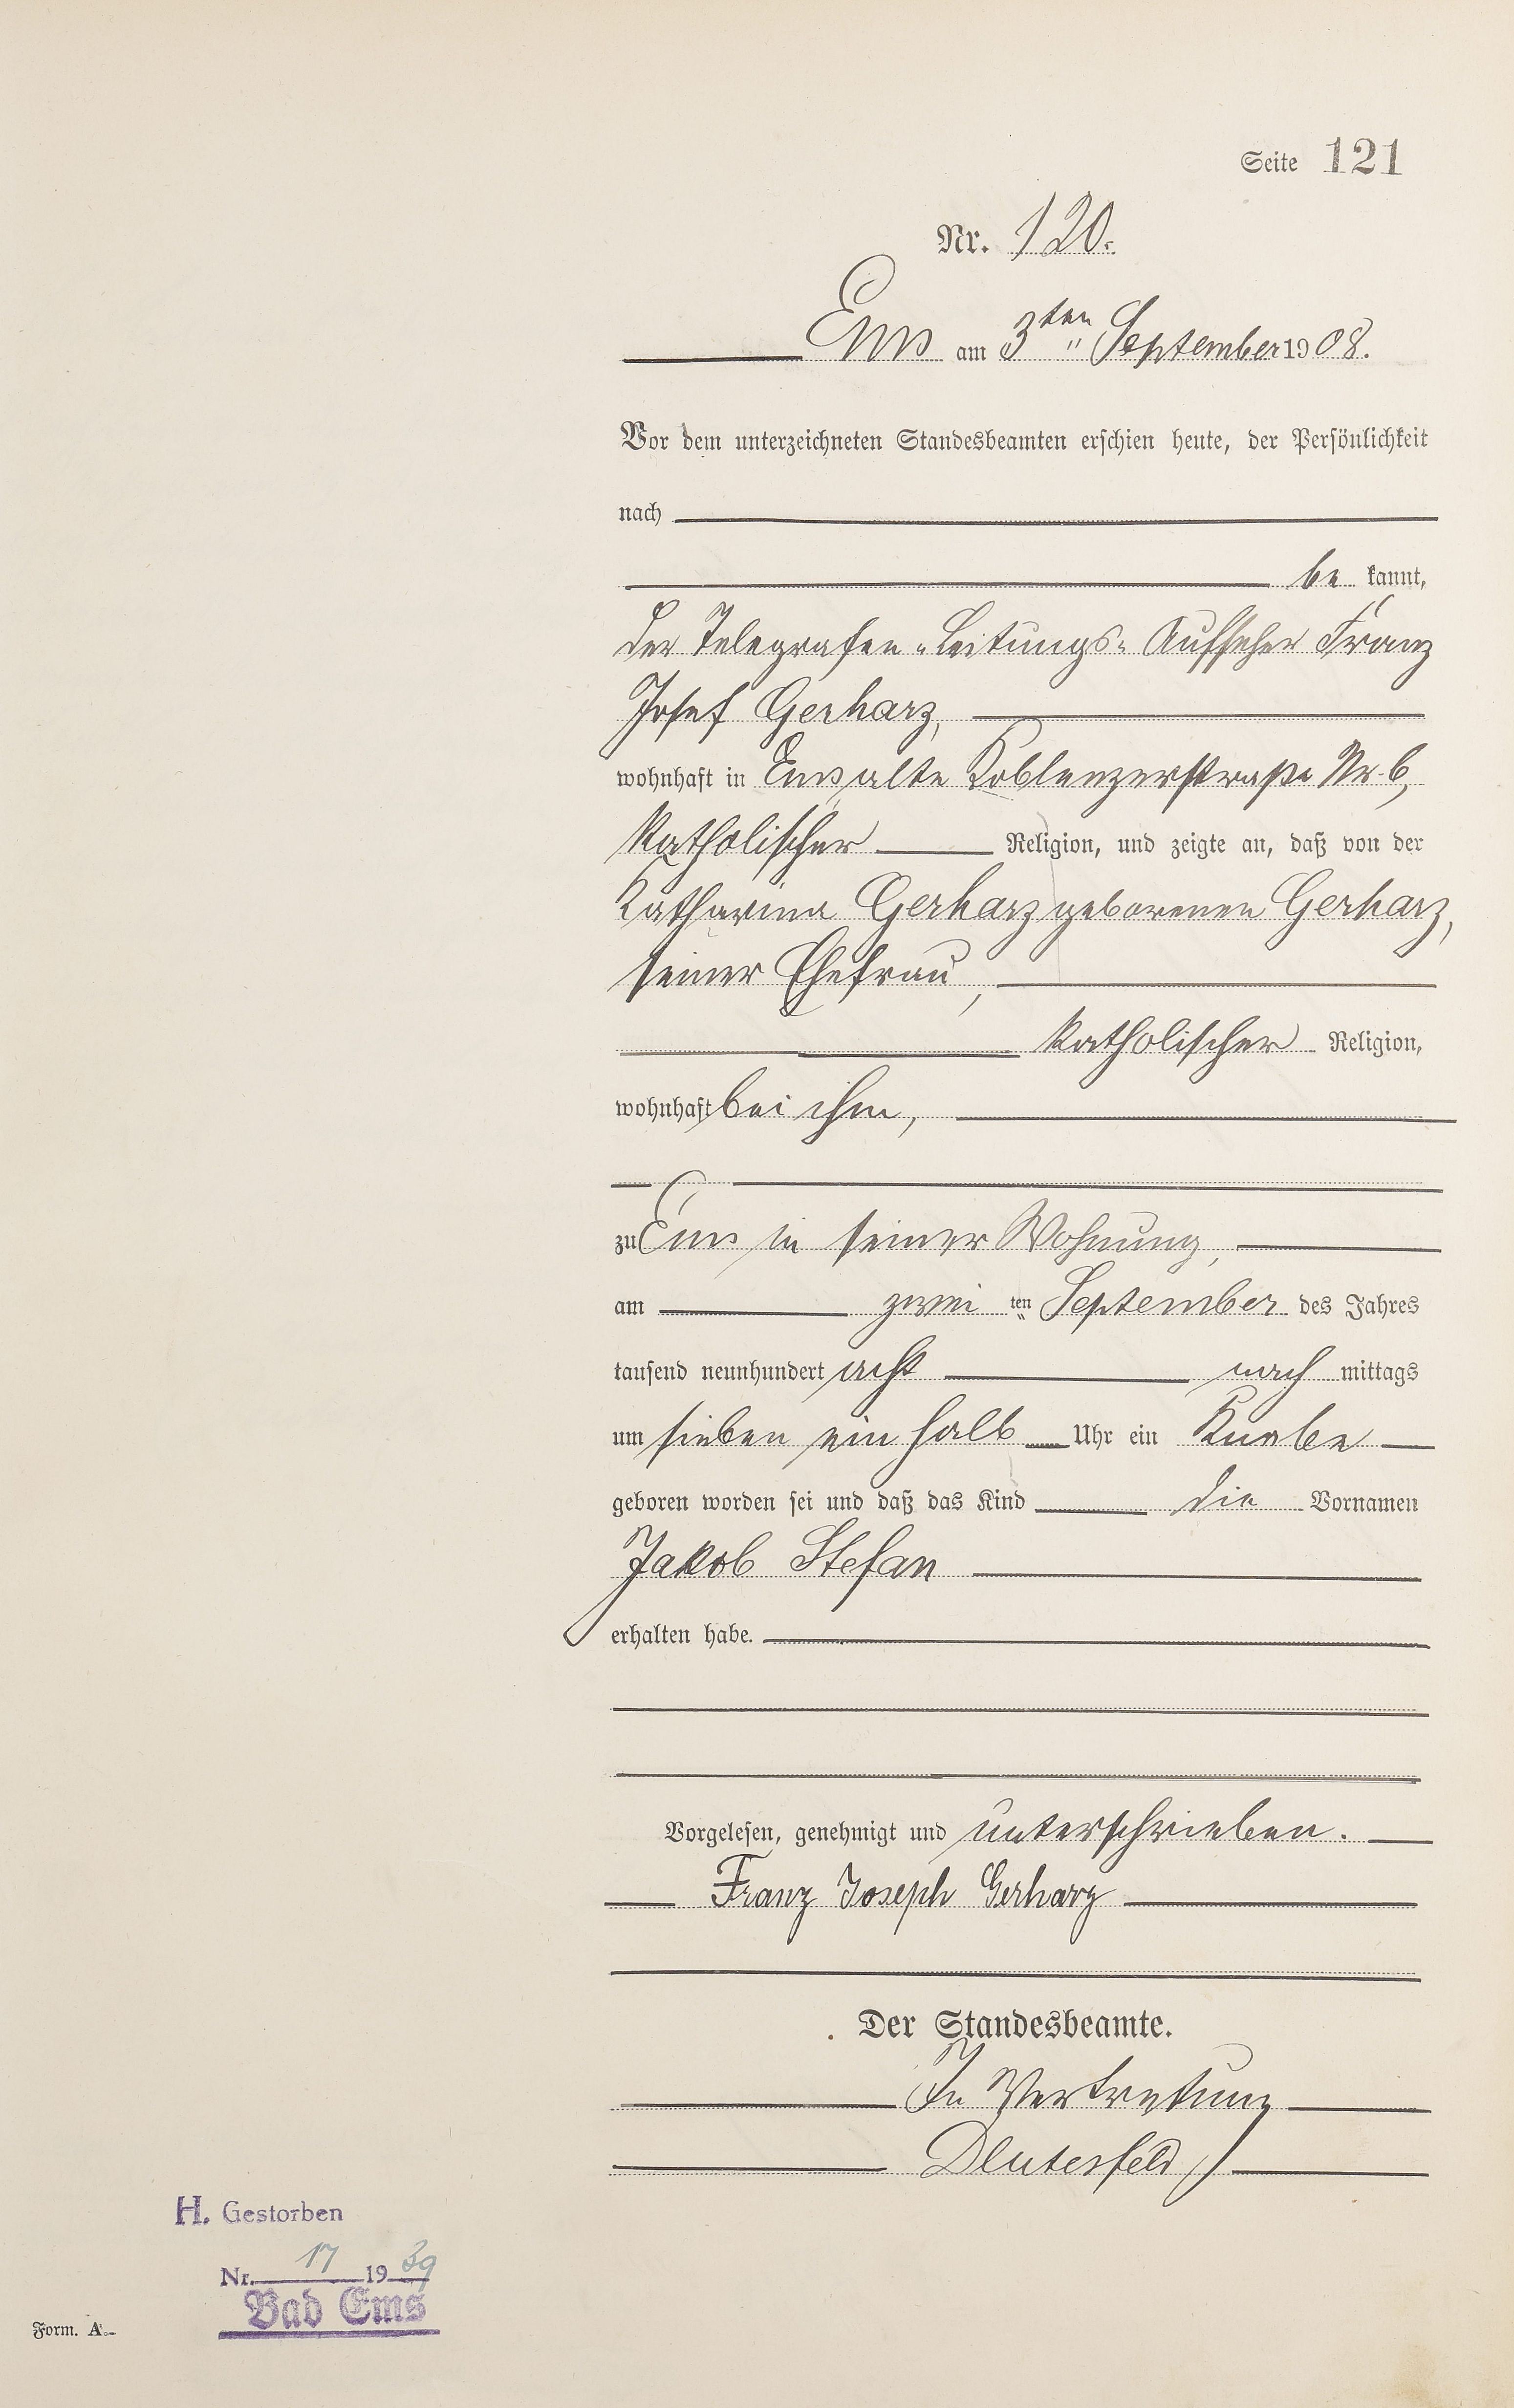 Seite 121
Nr. 120.
Ems am 3ten September 1908.
Vor dem unterzeichneten Standesbeamten erschien heute, der Persönlichkeit
nach
be kannt,
der Telegrafen-Leitungs-Aufseher Franz
Josef Gerharz,
wohnhaft in Ems, alte Koblenzerstraße Nr. 6,
katholischer Religion, und zeigte an, daß von der
Katharina Gerharz geborenen Gerharz,
seiner Ehefrau,
katholischer Religion,
wohnhaft bei ihm,
zu Ems in seiner Wohnung,
am zwei ten September des Jahres
tausend neunhundert acht nach mittags
um sieben ein halb Uhr ein Knabe
geboren worden sei und daß das Kind die Vornamen
Jakob Stefan
erhalten habe.
Vorgelesen, genehmigt und unterschrieben.
Franz Joseph Gerharz
Der Standesbeamte.
In Vertretung
H. Gestorben
Nr. 17 1939
Bad Ems
Form. A.